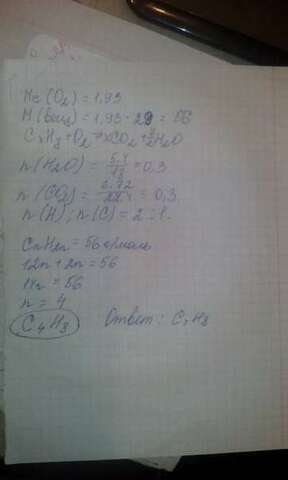 Не (O₂) = 1,93
M (вещ) = 1,93 · 29 = 56
CxHy + O₂ = xCO₂ + y/2H₂O
n (H₂O) = 5,4/18 = 0,3
n (CO₂) = 6,72/22,4 = 0,3
n (H) : n (C) = 2 : 1.
CnH₂n = 56 г/моль
12n + 2n = 56
14n = 56
n = 4
C₄H₈ Ответ: C₄H₈